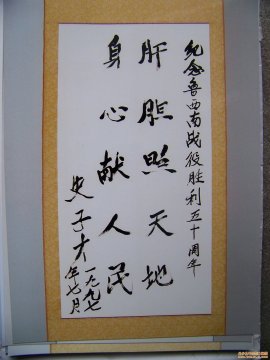 纪念鲁西南战役胜利五十周年
肝胆照天地
身心献人民
史子才
一九九七
年七月